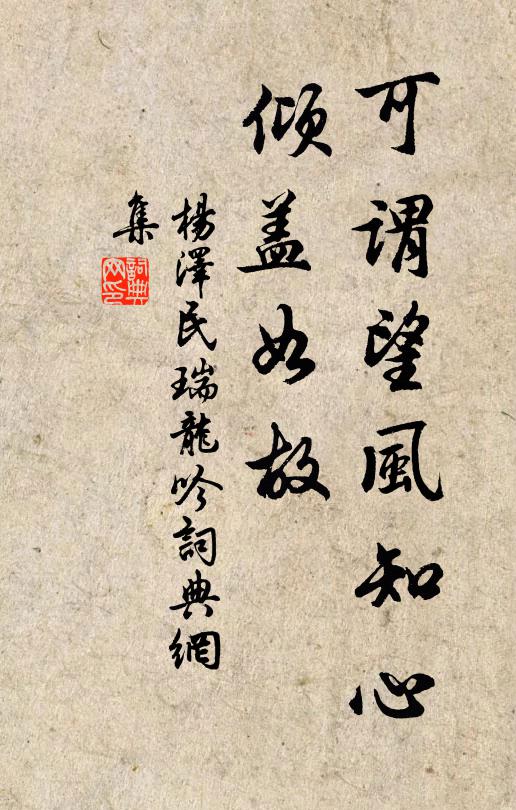 可謂望風知心
傾盖如故
楊澤民瑞龍吟詞典網
集
詞典
网印